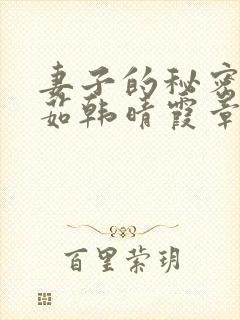 妻子的秘密
茹韩晴霞章
百里萦玥